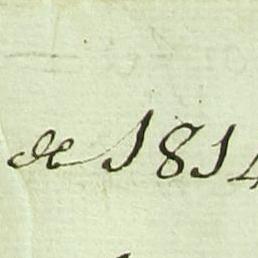 de 1814